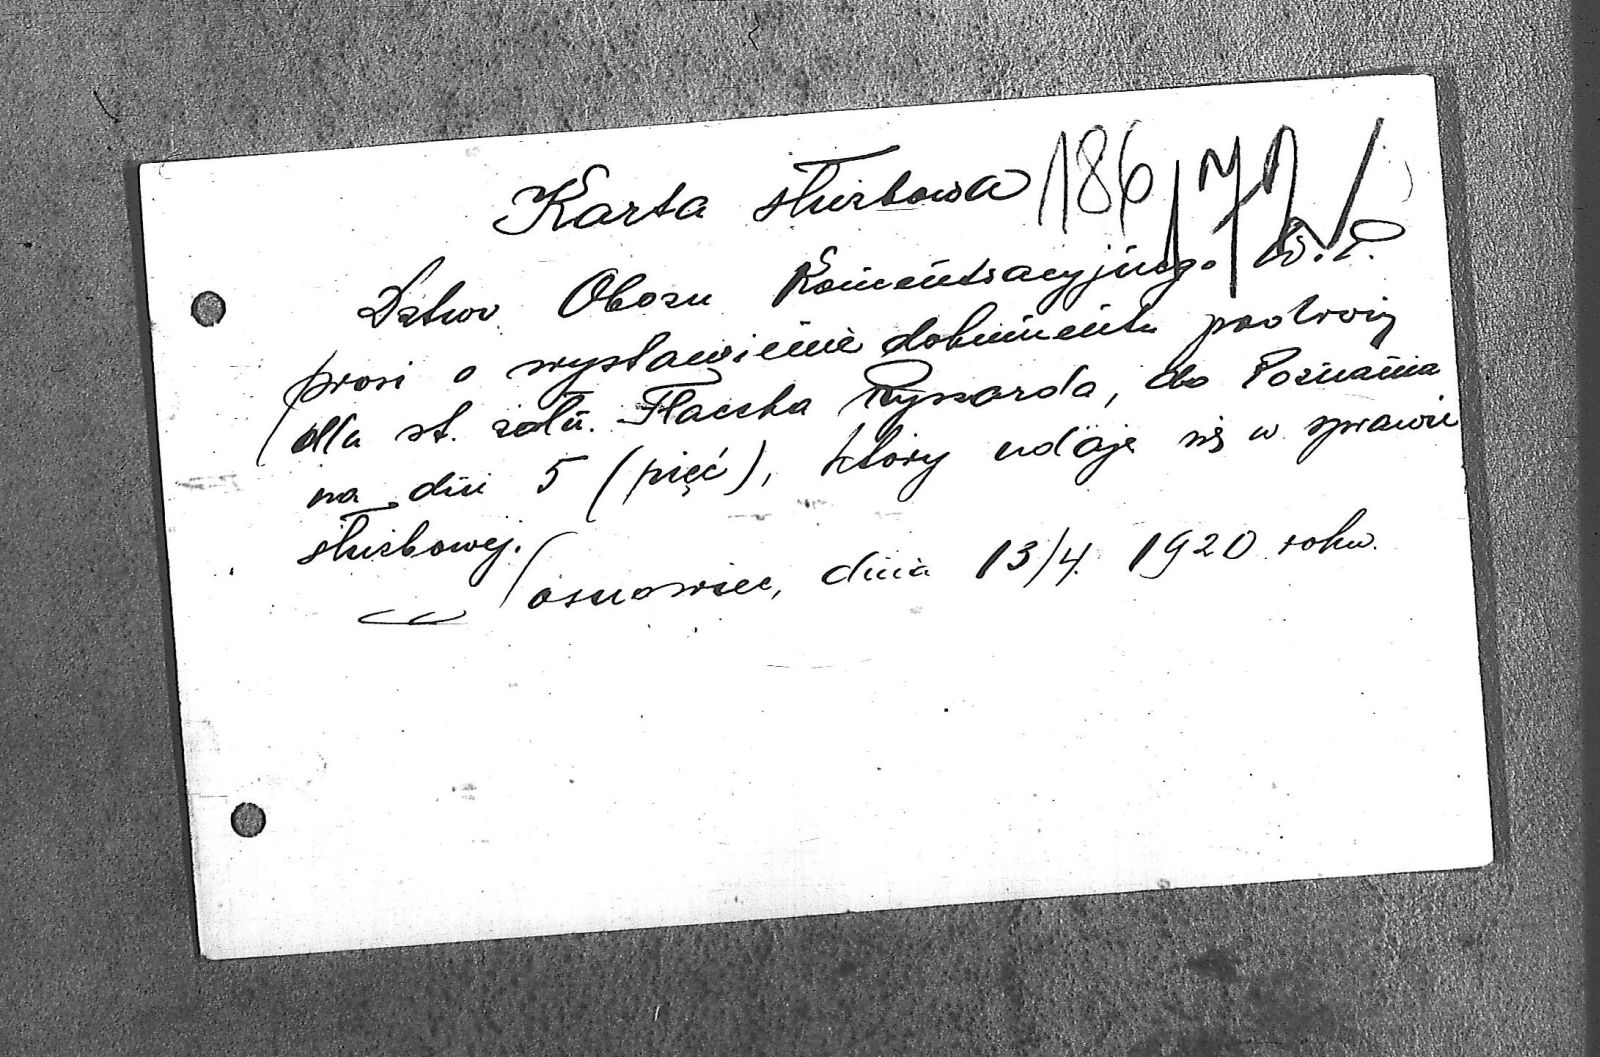 Karta służbowa 186
Dztwo Obozu Koncentracyjnego W.P.
prosi o wystawienie dokumentu podróży
dla st. żołn. Flaczka Ryszarda, do Poznania
na dni 5 (pięć), który udaje się w sprawie
służbowej.
Sosnowiec, dnia 13/4 1920 roku.